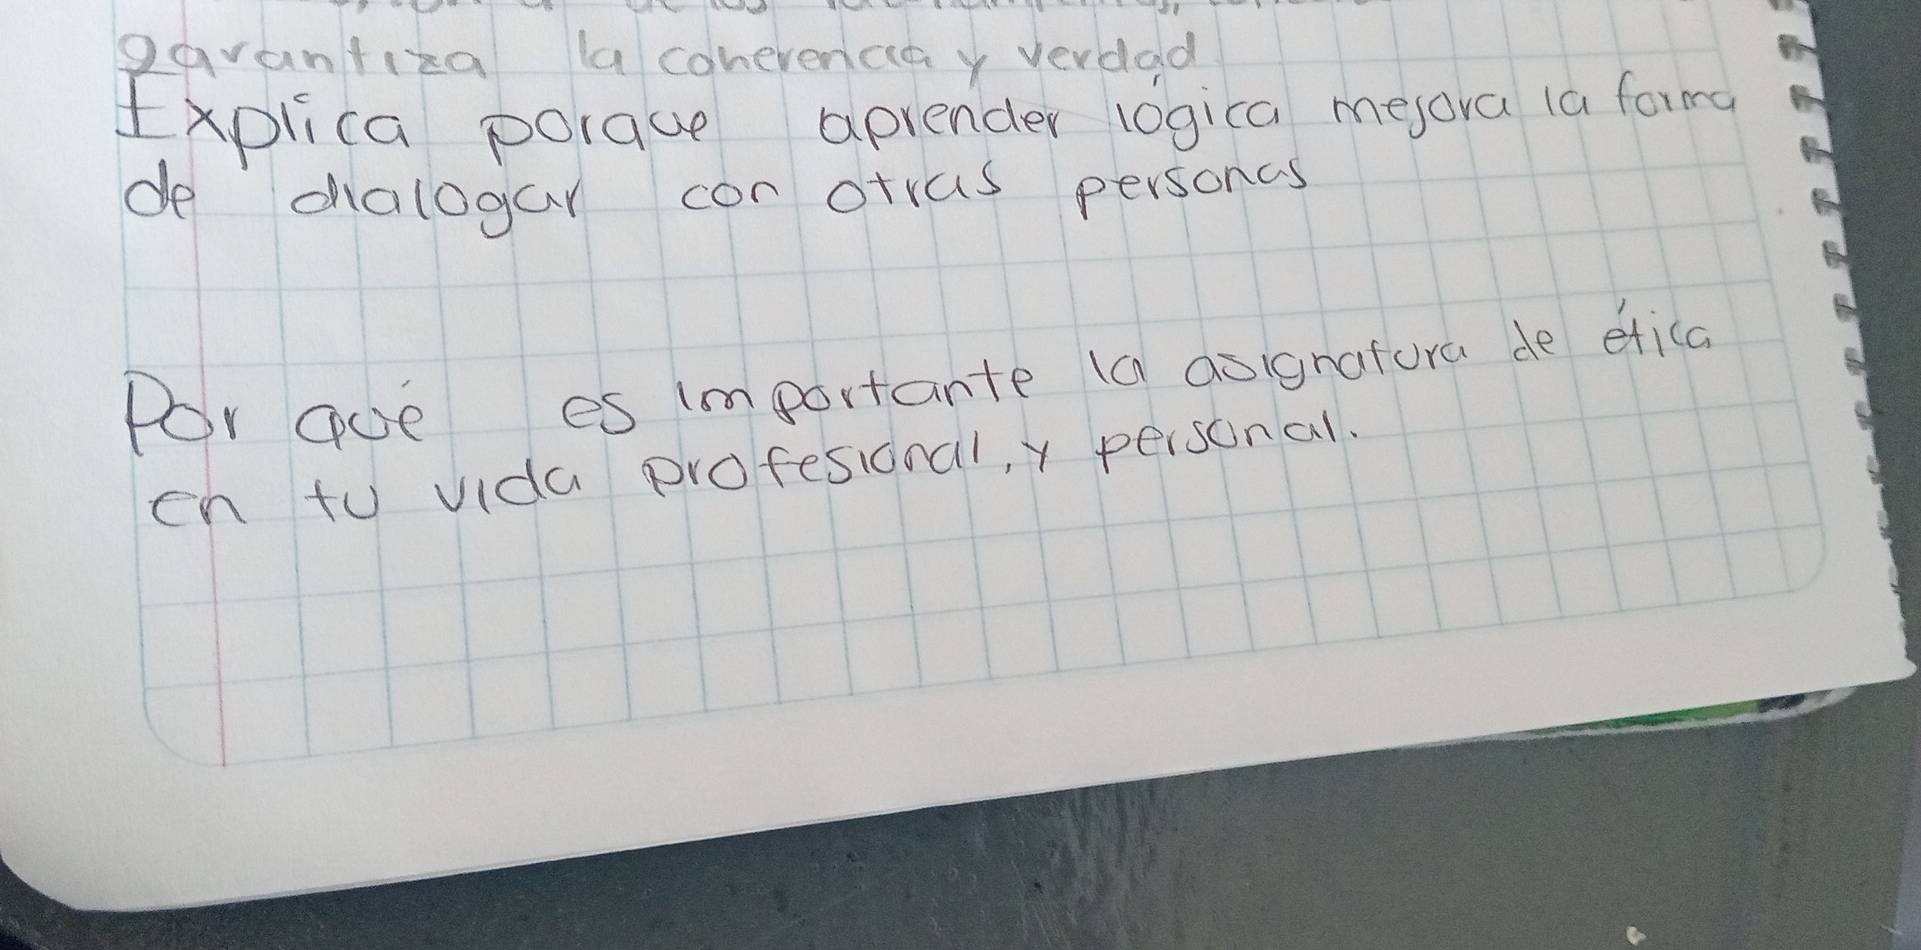 garantiza la coherencia y verdad
Explica porque aprender lógica mejora la forma
de dialogar con otras personas
Por qué es importante la asignatura de ética
en tu vida profesional, y personal.